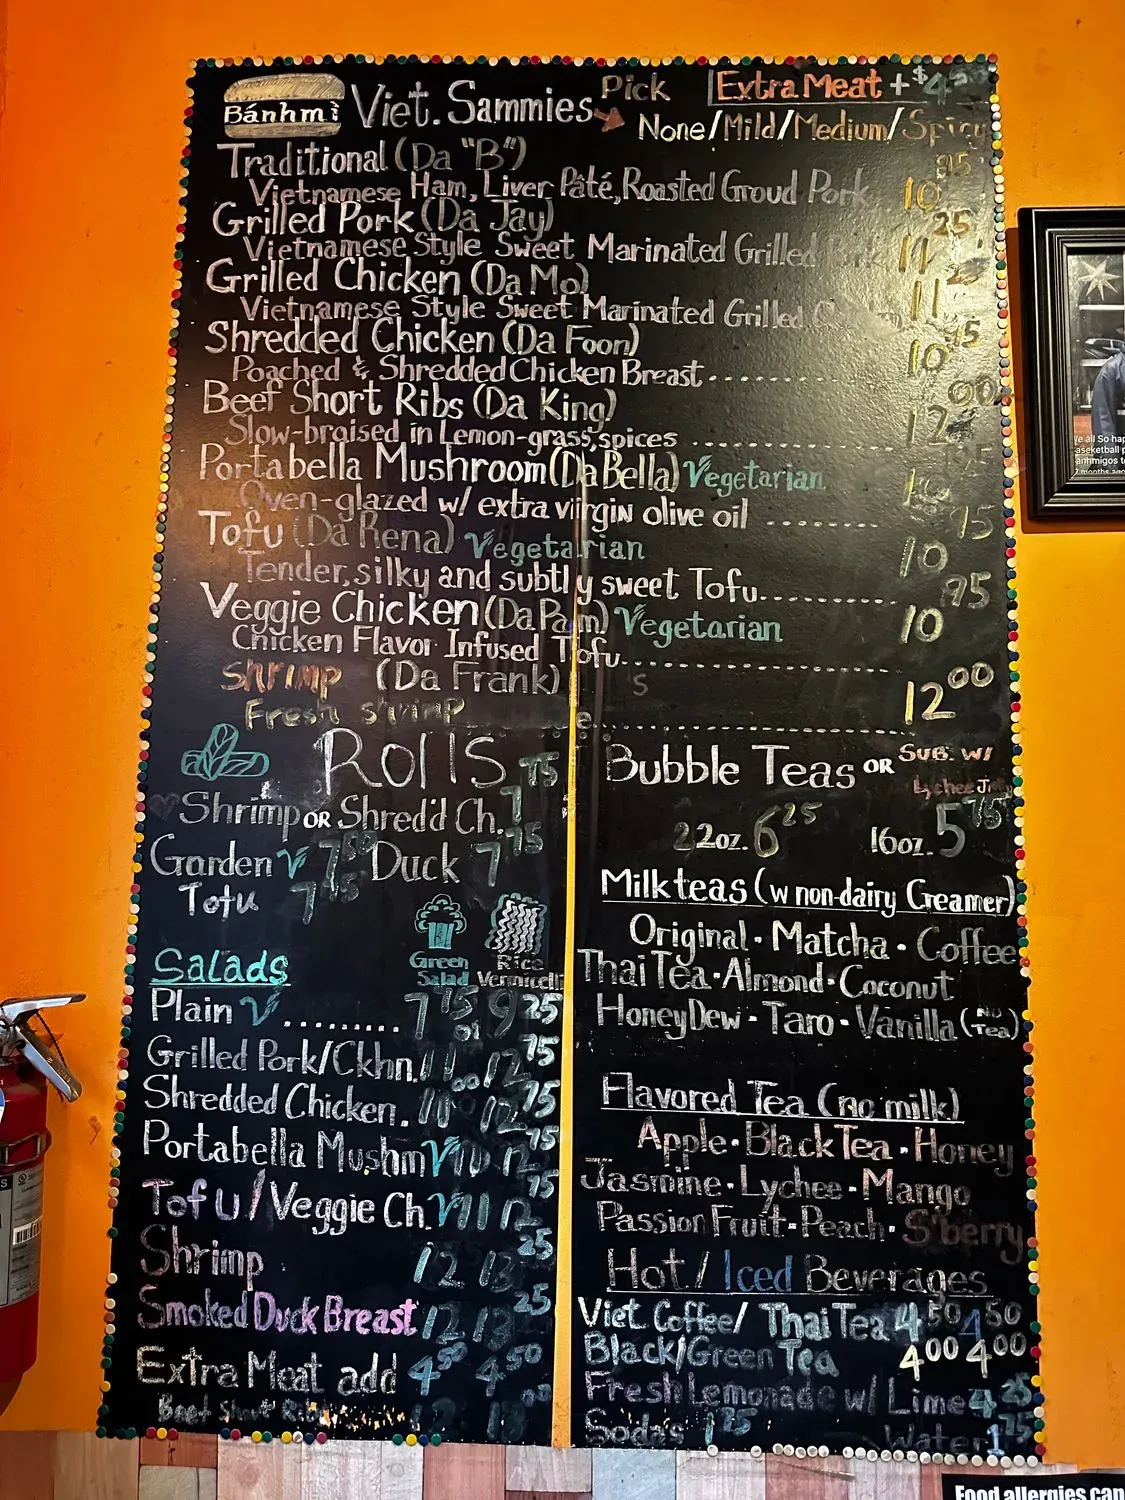 Bánhmì Viet. Sammies Pick Extra Meat + $4
None/Mild/Medium/Spicy
Traditional (Da "B")
Vietnamese Ham, Liver Pâté, Roasted Groud Pork 10 95
Grilled Pork (Da Jay)
Vietnamese Style Sweet Marinated Grilled 11 25
Grilled Chicken (Da Mo)
Vietnamese Style Sweet Marinated Grilled 11
Shredded Chicken (Da Foon)
Poached & Shredded Chicken Breast........... 10 95
Beef Short Ribs (Da King)
Slow-braised in Lemon-grass, spices ............ 12 00
Portabella Mushroom (Da Bella) Vegetarian
Oven-glazed w/ extra virgin olive oil ........
Tofu (Da Rena) Vegetarian
Tender, silky and subtly sweet Tofu............ 10 95
Veggie Chicken (Da Pam) Vegetarian
Chicken Flavor Infused Tofu................... 10 95
Shrimp (Da Frank)
Fresh shrimp ................... 12 00
Rolls
Shrimp OR Shred'd Ch. 7 75
Garden V 7 Duck 7 75
Tofu 7
Green Salad
Rice Vermicelli
Salads
Plain V ......... 7 or 9 25
Grilled Pork/Ckhn. 11 12 75
Shredded Chicken. 11 00 12 75
Portabella Mushm V 12 75
Tofu/Veggie Ch. V 11 12 75
Shrimp 12 13 25
Smoked Duck Breast 12 13 25
Extra Meat add 4 50 4 50
Beef Short Rib 12 13 00
Bubble Teas OR Sub. w/ Lychee
22oz. 6 25 16oz. 5 75
Milk teas (w non-dairy Creamer)
Original · Matcha · Coffee
Thai Tea · Almond · Coconut
HoneyDew - Taro · Vanilla (No Tea)
Flavored Tea (no milk)
Apple · Black Tea · Honey
Jasmine · Lychee · Mango
Passion Fruit - Peach · S'berry
Hot / Iced Beverages
Viet Coffee/ Thai Tea 4 50 4 50
Black/Green Tea 4 00 4 00
Fresh Lemonade w/ Lime 4 25
Soda's 1 75 Water 1 75
Food allergies can